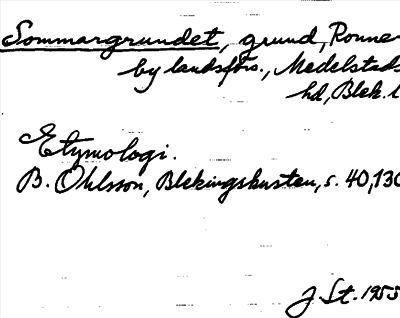 Sommargrundet, grund, Ronne
by landsförs., Medelstads
hd, Blek. l
Etymologi.
B. Ohlsson, Blekingskusten, s. 40, 130
J. St. 1955